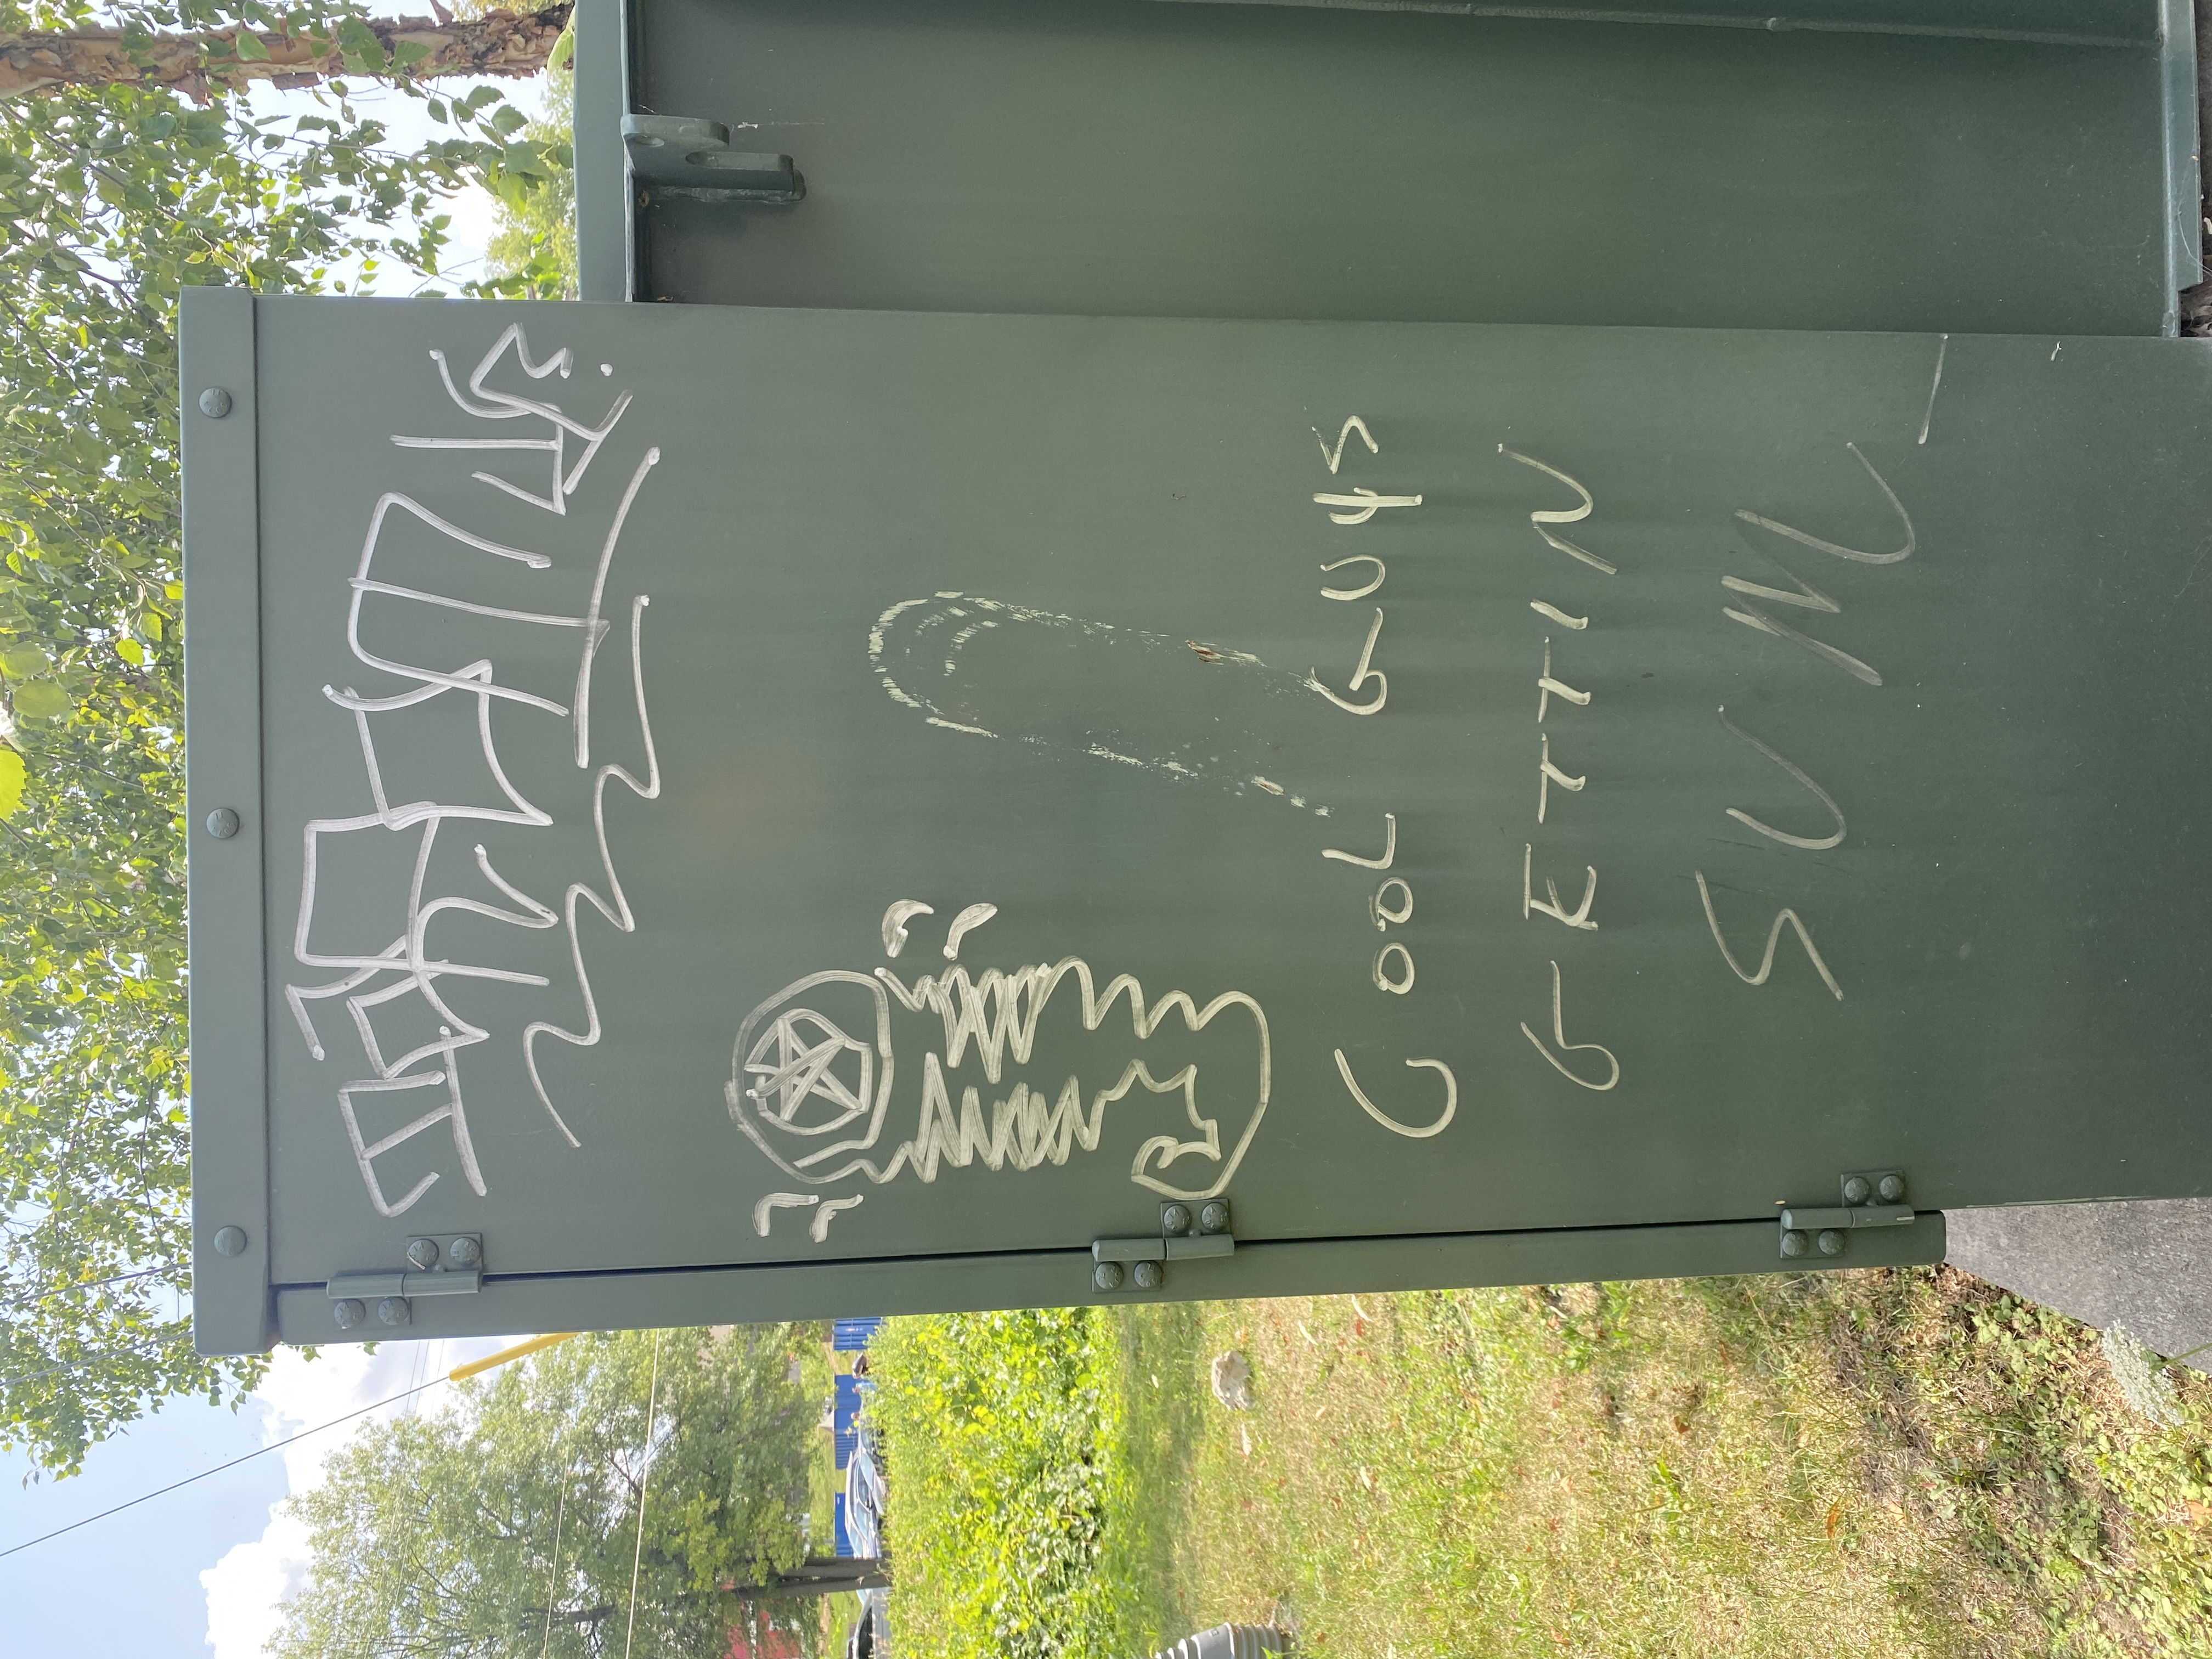 COOL GUYS
GETTIN
SUM